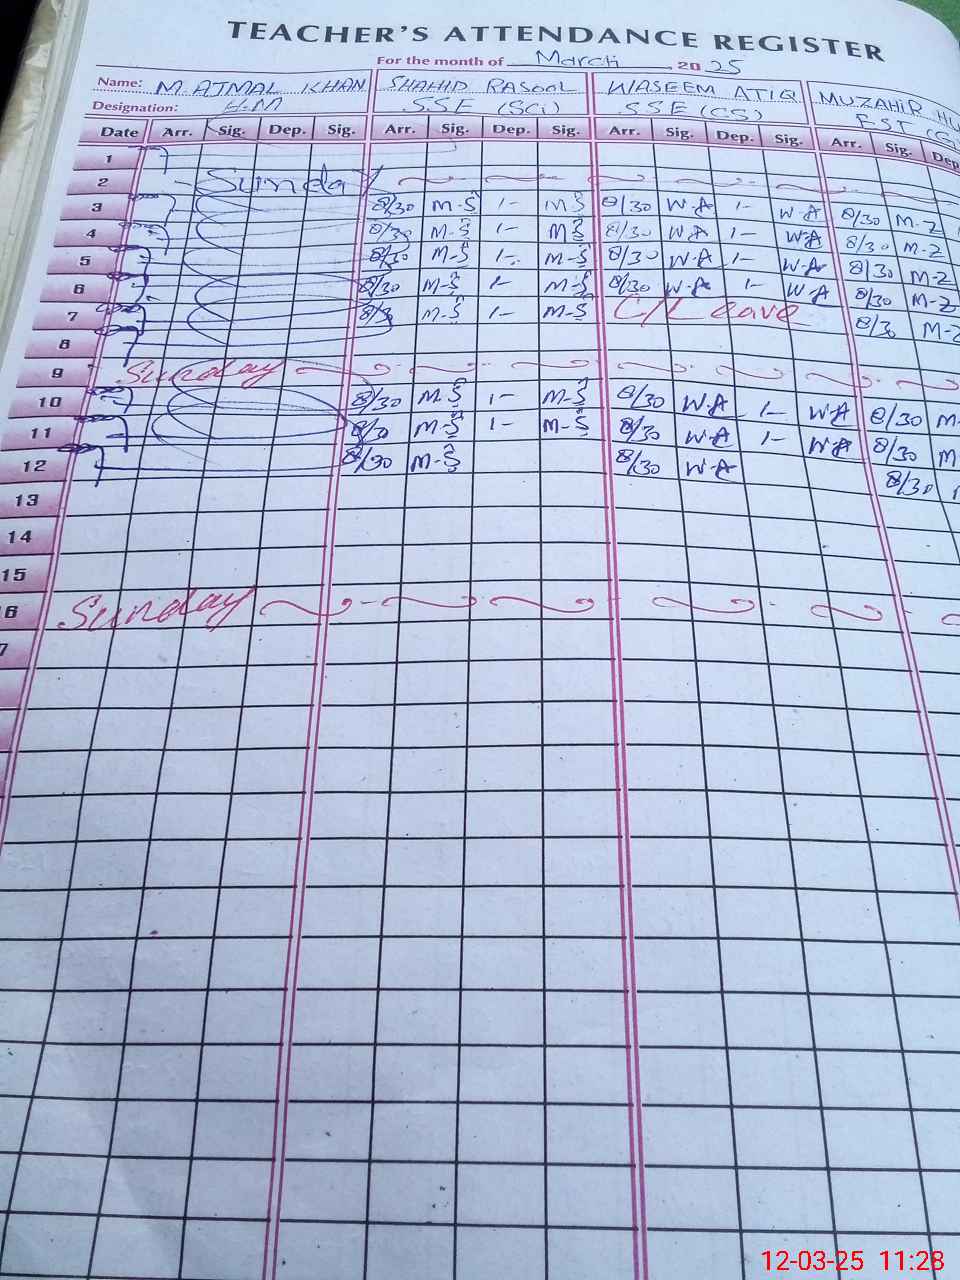 TEACHER'S ATTENDANCE REGISTER
For the month of March 2025
Name: M. AJMAL KHAN SHAHID RASOOL WASEEM ATIQ MUZAHIR HU
Designation: H.M SSE (Sci) SSE (CS) EST (
Date Arr. Sig. Dep. Sig. Arr. Sig. Dep. Sig. Arr. Sig. Dep. Sig. Arr. Sig. Dep
1
2 Sunday
3 8/30 M-S 1- M-S 8/30 W-A 1- W-A 8/30 M-Z
4 8/30 M-S 1- M-S 8/30 W-A 1- W-A 8/30 M-Z
5 8/30 M-S 1- M-S 8/30 W-A 1- W-A 8/30 M-Z
6 8/30 M-S 1- M-S 8/30 W-A 1- W-A 8/30 M-Z
7 8/30 M-S 1- M-S C/Leave 8/30 M-Z
8
9 Sunday
10 8/30 M-S 1- M-S 8/30 W-A 1- W-A 8/30 M-
11 8/30 M-S 1- M-S 8/30 W-A 1- W-A 8/30 M-
12 8/30 M-S 8/30 W-A 8/30
13
14
15
16 Sunday
7
12-03-25 11:28